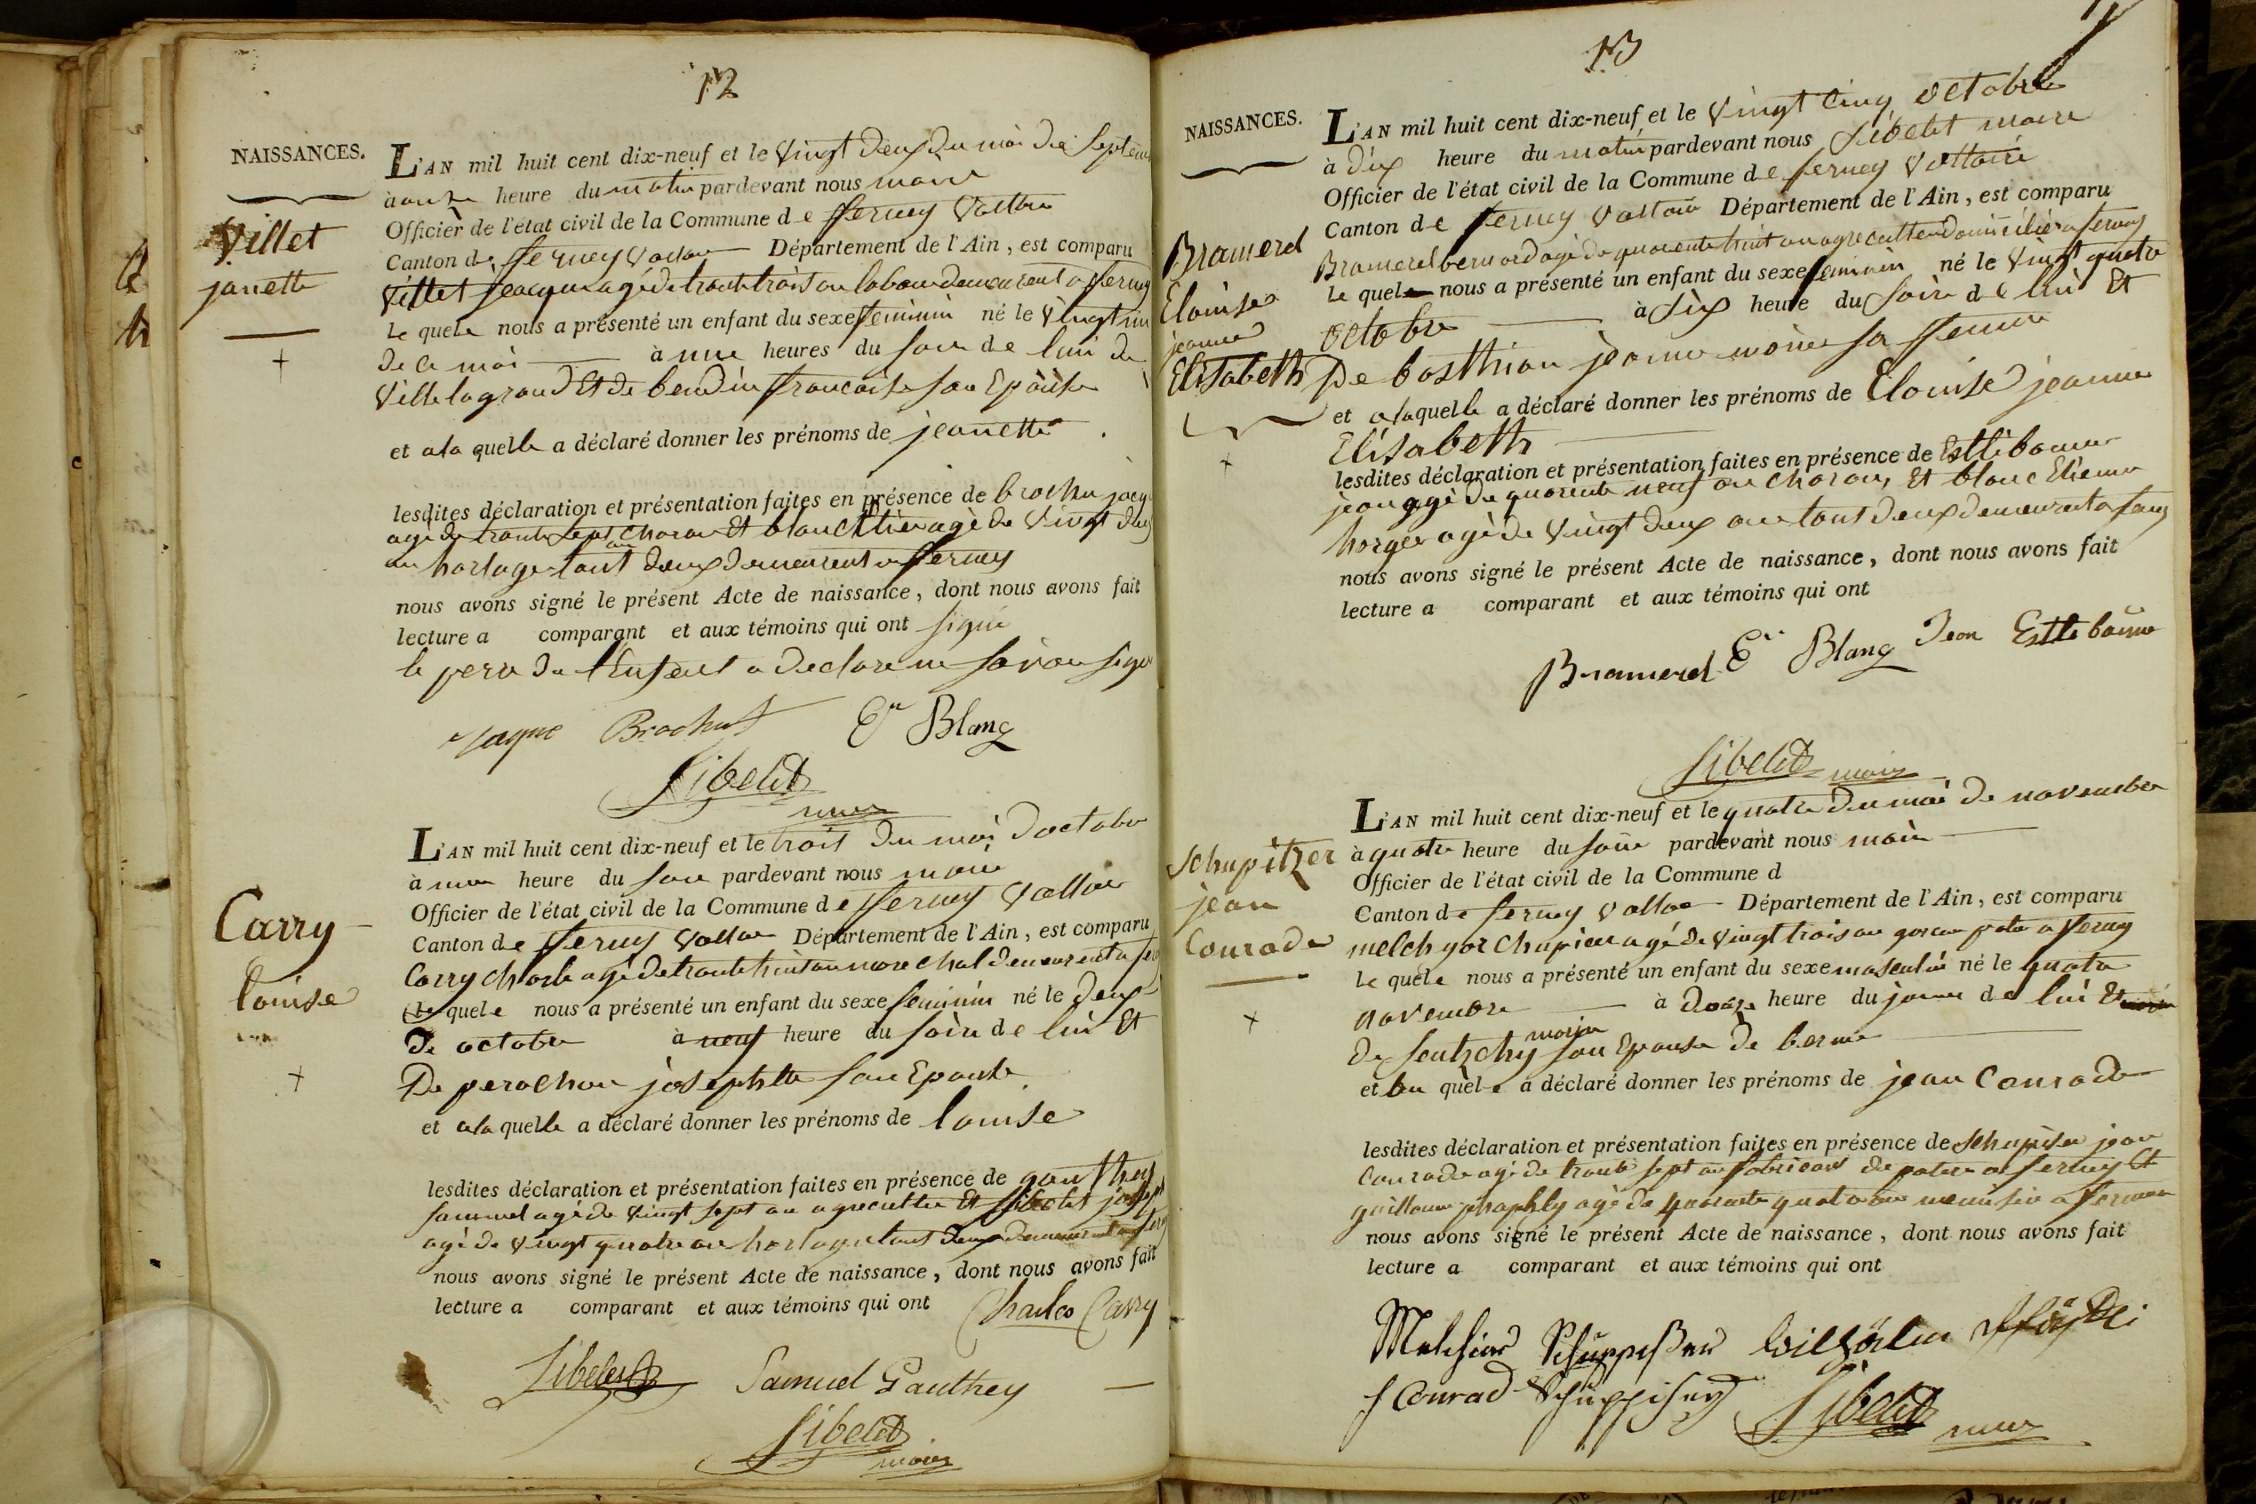 12
NAISSANCES.
Villet
janette
+
L'AN mil huit cent dix-neuf et le vingt deux du moi de Septem
à onze heure du matin pardevant nous maire
Officier de l'état civil de la Commune de ferney Voltre
Canton de ferney Voltre Département de l'Ain, est comparu
Villet jeacque agé de trante trois an demeurent a ferney
Le quele nous a présenté un enfant du sexe feminin né le vingt un
de ce moi à une heures du soir de lui de
Ville la grand Et de bendin francoise son Epouse
et a la quelle a déclaré donner les prénoms de jeanette.
lesdites déclaration et présentation faites en présence de brochu jacq
agé de trante sept an charon Et blanc Etiene agé de vingt deux
an horloger tout deux demeurent a ferney
nous avons signé le présent Acte de naissance, dont nous avons fait
lecture a comparant et aux témoins qui ont signé
le pere de l'Enfant a declare ne savoir signe
Jaque Brochut En Blanc
Sibelit
maire
Carry
louise
+
L'AN mil huit cent dix-neuf et le trois du moi d'octobre
à une heure du soir pardevant nous maire
Officier de l'état civil de la Commune de ferney Voltre
Canton de ferney Voltre Département de l'Ain, est comparu
Carry charle agé de trante huit an marechal demeurent a fer
Le quele nous a présenté un enfant du sexe feminin né le deux
de octobre à neuf heure du soir de lui Et
De perochon josephte son Epouse
et a la quelle a déclaré donner les prénoms de louise
lesdites déclaration et présentation faites en présence de gauthey
samuel agé de vingt sept an agreculter Et Sibelit joseph
agé de vingt quatre an horloge tout deux demeurent a fer
nous avons signé le présent Acte de naissance, dont nous avons fait
lecture a comparant et aux témoins qui ont Charles Carry
Sibelit Samuel Gauthey
Sibelit
maire
13
NAISSANCES.
Bramerel
Elouise
jeanne
Elisabeth
+
L'AN mil huit cent dix-neuf et le vingt cinq octobre
à dix heure du matin pardevant nous Sibelit maire
Officier de l'état civil de la Commune de ferney Voltaire
Canton de ferney Voltaire Département de l'Ain, est comparu
Bramerel bernord agé de quarente huit an agreculter domicilié a ferney
Le quele nous a présenté un enfant du sexe feminin né le vingt quatre
octobre à six heure du soir de lui Et
De basthian jeanne sa femme
et a laquelle a déclaré donner les prénoms de Elouise jeanne
Elisabeth
lesdites déclaration et présentation faites en présence de Estlibaume
jean agé de quarente neuf an charon, Et blanc Etienne
horger agé de vingt deux an tout deux demeurent a
nous avons signé le présent Acte de naissance, dont nous avons fait
lecture a comparant et aux témoins qui ont
Bramerel En Blanc Jean Estlibaume
Sibelit maire
Schupitzer
jean
Conrade
+
L'AN mil huit cent dix-neuf et le quatre du moi de novembre
à quatre heure du soir pardevant nous maire
Officier de l'état civil de la Commune d
Canton de ferney Voltre Département de l'Ain, est comparu
melchyor agé de vingt trois an a ferney
Le quele nous a présenté un enfant du sexe masculin né le quatre
novembre à heure du jour de lui Et
de marie son Epouse de berne
et au quele a déclaré donner les prénoms de jean Conrade
lesdites déclaration et présentation faites en présence de jean
Conrade agé de trante sept an fabricant de poterie a ferney Et
guillaume agé de quarante quatre an menuisier a ferney
nous avons signé le présent Acte de naissance, dont nous avons fait
lecture a comparant et aux témoins qui ont
Melchior
Conrad
Sibelit
maire